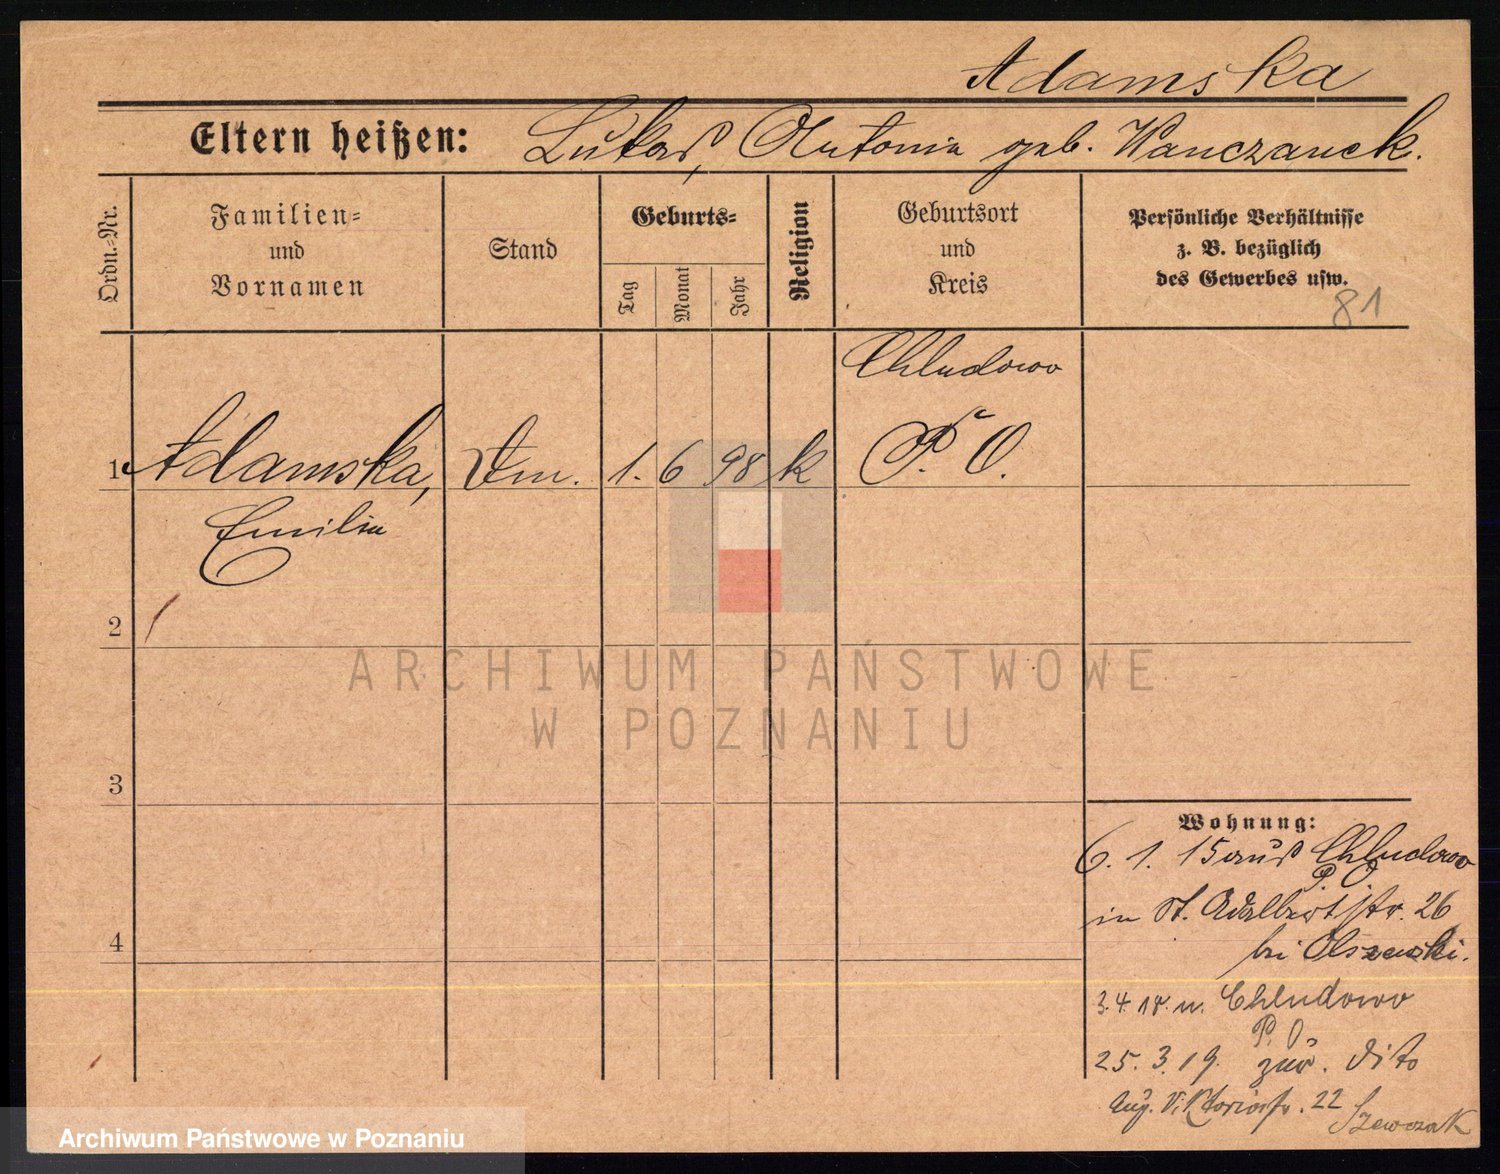 Adamska
Eltern heißen: Lukas, Antonia geb. Wanczarek.
Ordn.-Nr.
Familien-
und
Vornamen
Stand
Geburts-
Tag
Monat
Jahr
Religion
Geburtsort
und
Kreis
Persönliche Verhältnisse
z. B. bezüglich
des Gewerbes usw.
81
Chludowo
1 Adamska, 1. 6 98 k P. O.
Emilia
2
ARCHIWUM PAŃSTWOWE
W POZNANIU
3
Wohnung:
6. 1. 15 aus Chludowo
P. O
in St. Adalbertstr. 26
bei Olszewski.
4
3.4.18. n. Chludowo
P. O
25. 3. 19. zur. dito
Aug. Viktoriastr. 22 Szewczak
Archiwum Państwowe w Poznaniu